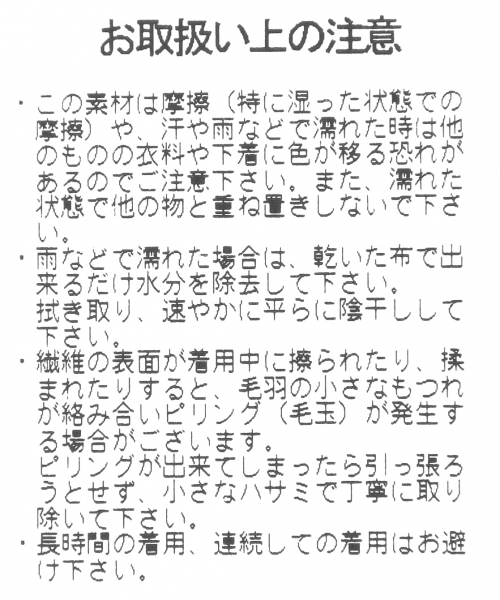 お取扱い上の注意
・この素材は摩擦（特に湿った状態での
摩擦）や、汗や雨などで濡れた時は他
のものの衣料や下着に色が移る恐れが
あるのでご注意下さい。また、濡れた
状態で他の物と重ね置きしないで下さ
い。
・雨などで濡れた場合は、乾いた布で出
来るだけ水分を除去して下さい。
拭き取り、速やかに平らに陰干しして
下さい。
・繊維の表面が着用中に擦られたり、揉
まれたりすると、毛羽の小さなもつれ
が絡み合いピリング（毛玉）が発生す
る場合がございます。
ピリングが出来てしまったら引っ張ろ
うとせず、小さなハサミで丁寧に取り
除いて下さい。
・長時間の着用、連続しての着用はお避
け下さい。